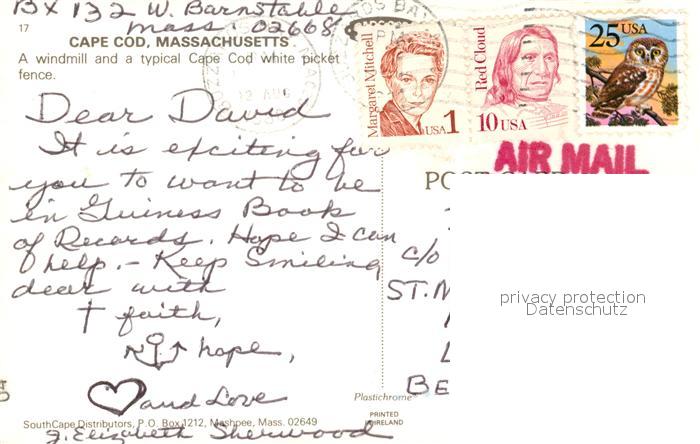 BX 132 W. Barnstable
Mass. 02668
17
CAPE COD, MASSACHUSETTS
A windmill and a typical Cape Cod white picket
fence.
Dear David
It is exciting for
you to want to be
in Guiness Book
of Records. Hope I can
help. - Keep Smiling
dear with
faith,
hope,
and Love
J. Elizabeth Sherwood
SouthCape Distributors, P.O. Box 1212, Mashpee, Mass. 02649
Plastichrome
PRINTED
IRELAND
Margaret Mitchell
USA 1
Red Cloud
10 USA
25 USA
AIR MAIL
POST
c/o
ST. M
BE
privacy protection
Datenschutz